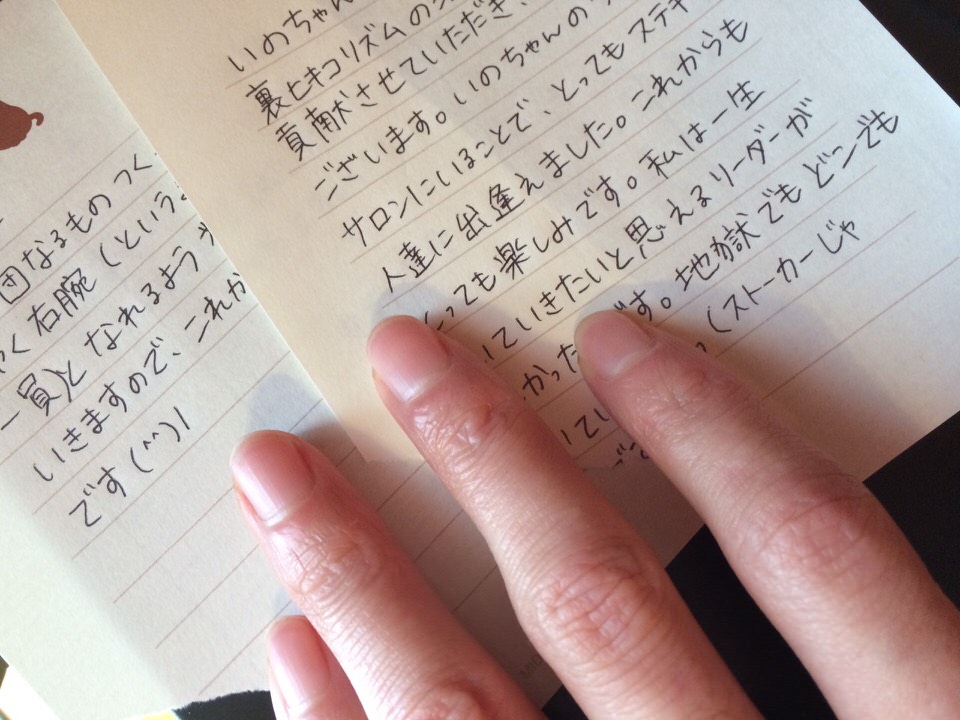 いのちゃん
裏ヒキコリズムの
貢献させていただき、
ございます。いのちゃんの
サロンにいることで、とってもステキ
人達に出逢えました。これからも
とっても楽しみです。私は一生
していきたいと思えるリーダーが
かった です。地獄でもどこでも
てい (ストーカーじゃ
団なるものつく
く右腕(という
一員)となれるよう
いきますので、これか
です(^^)/